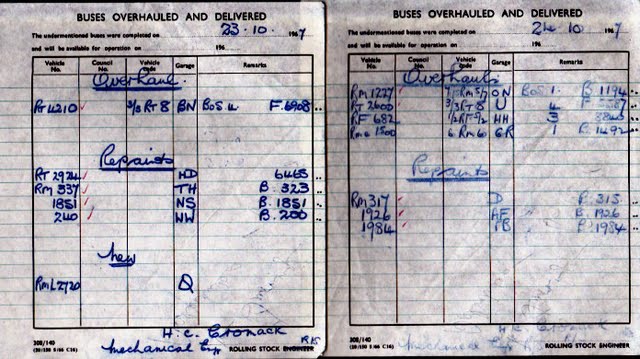 BUSES OVERHAULED AND DELIVERED
The undermentioned buses were completed on 23.10. 1967
and will be available for operation on 196
Vehicle No. Council No. Vehicle Code Garage Remarks
Overhaul
RT 4210 3/3 RT 8 BN BoS 4 F.6908
Repaints
RT 2924 HD 6465
RM 337 TH B. 323
1851 NS B. 1851
240 NW B. 200
New
RML2720 Q
H.C. Cromack
308/140 RKS
Mechanical Eng ROLLING STOCK ENGINEER
BUSES OVERHAULED AND DELIVERED
The undermentioned buses were completed on 24.10 1967
and will be available for operation on 196
Vehicle No. Council No. Vehicle Code Garage Remarks
Overhauls
RM 1227 RM 5/7 ON BoS 1. B. 1194
RT 2600 3/3 RT 8 U 4 F
RF 682 HH 3
1500 6 RM 60 GR 1 B. 1492
Repaints
RM 317 D B. 315
1926 AF B. 1926
1984 B. 1984
H.C. Cromack
308/140
Mechanical Eng ROLLING STOCK ENGINEER